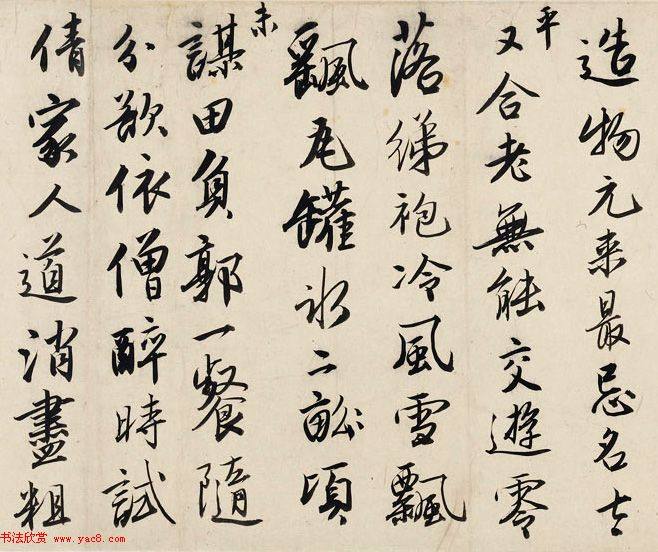 造物元来最忌名生
平又合老無能交遊零
落綈袍冷風雪飄
飖瓦罐冰二畝頃
未謀田負郭一餐隨
分欲依僧醉時試
倩家人道消盡粗
书法欣赏 www.yac8.com